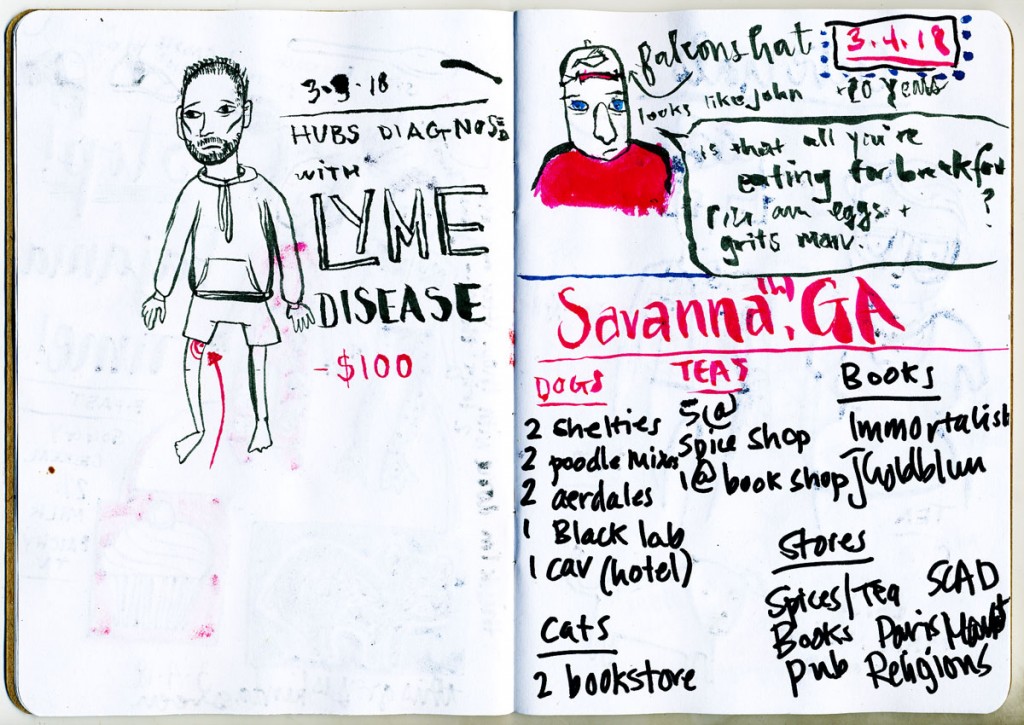 3.3.18
HUBS DIAGNOSED
WITH
LYME
DISEASE
-$100
falcons hat
3.4.18
looks like John +20 years
is that all you're
eating for breakfast
?
eggs +
grits
Savanna(h), GA
DOGS
2 shelties
2 poodle mixes
2 aerdales
1 Black lab
1 cav (hotel)
Cats
2 bookstore
TEAS
5@
spice shop
1@ book shop
Books
Immortalist
JGoldblum
Stores
Spices/Tea SCAD
Books Paris Market
Pub Religions